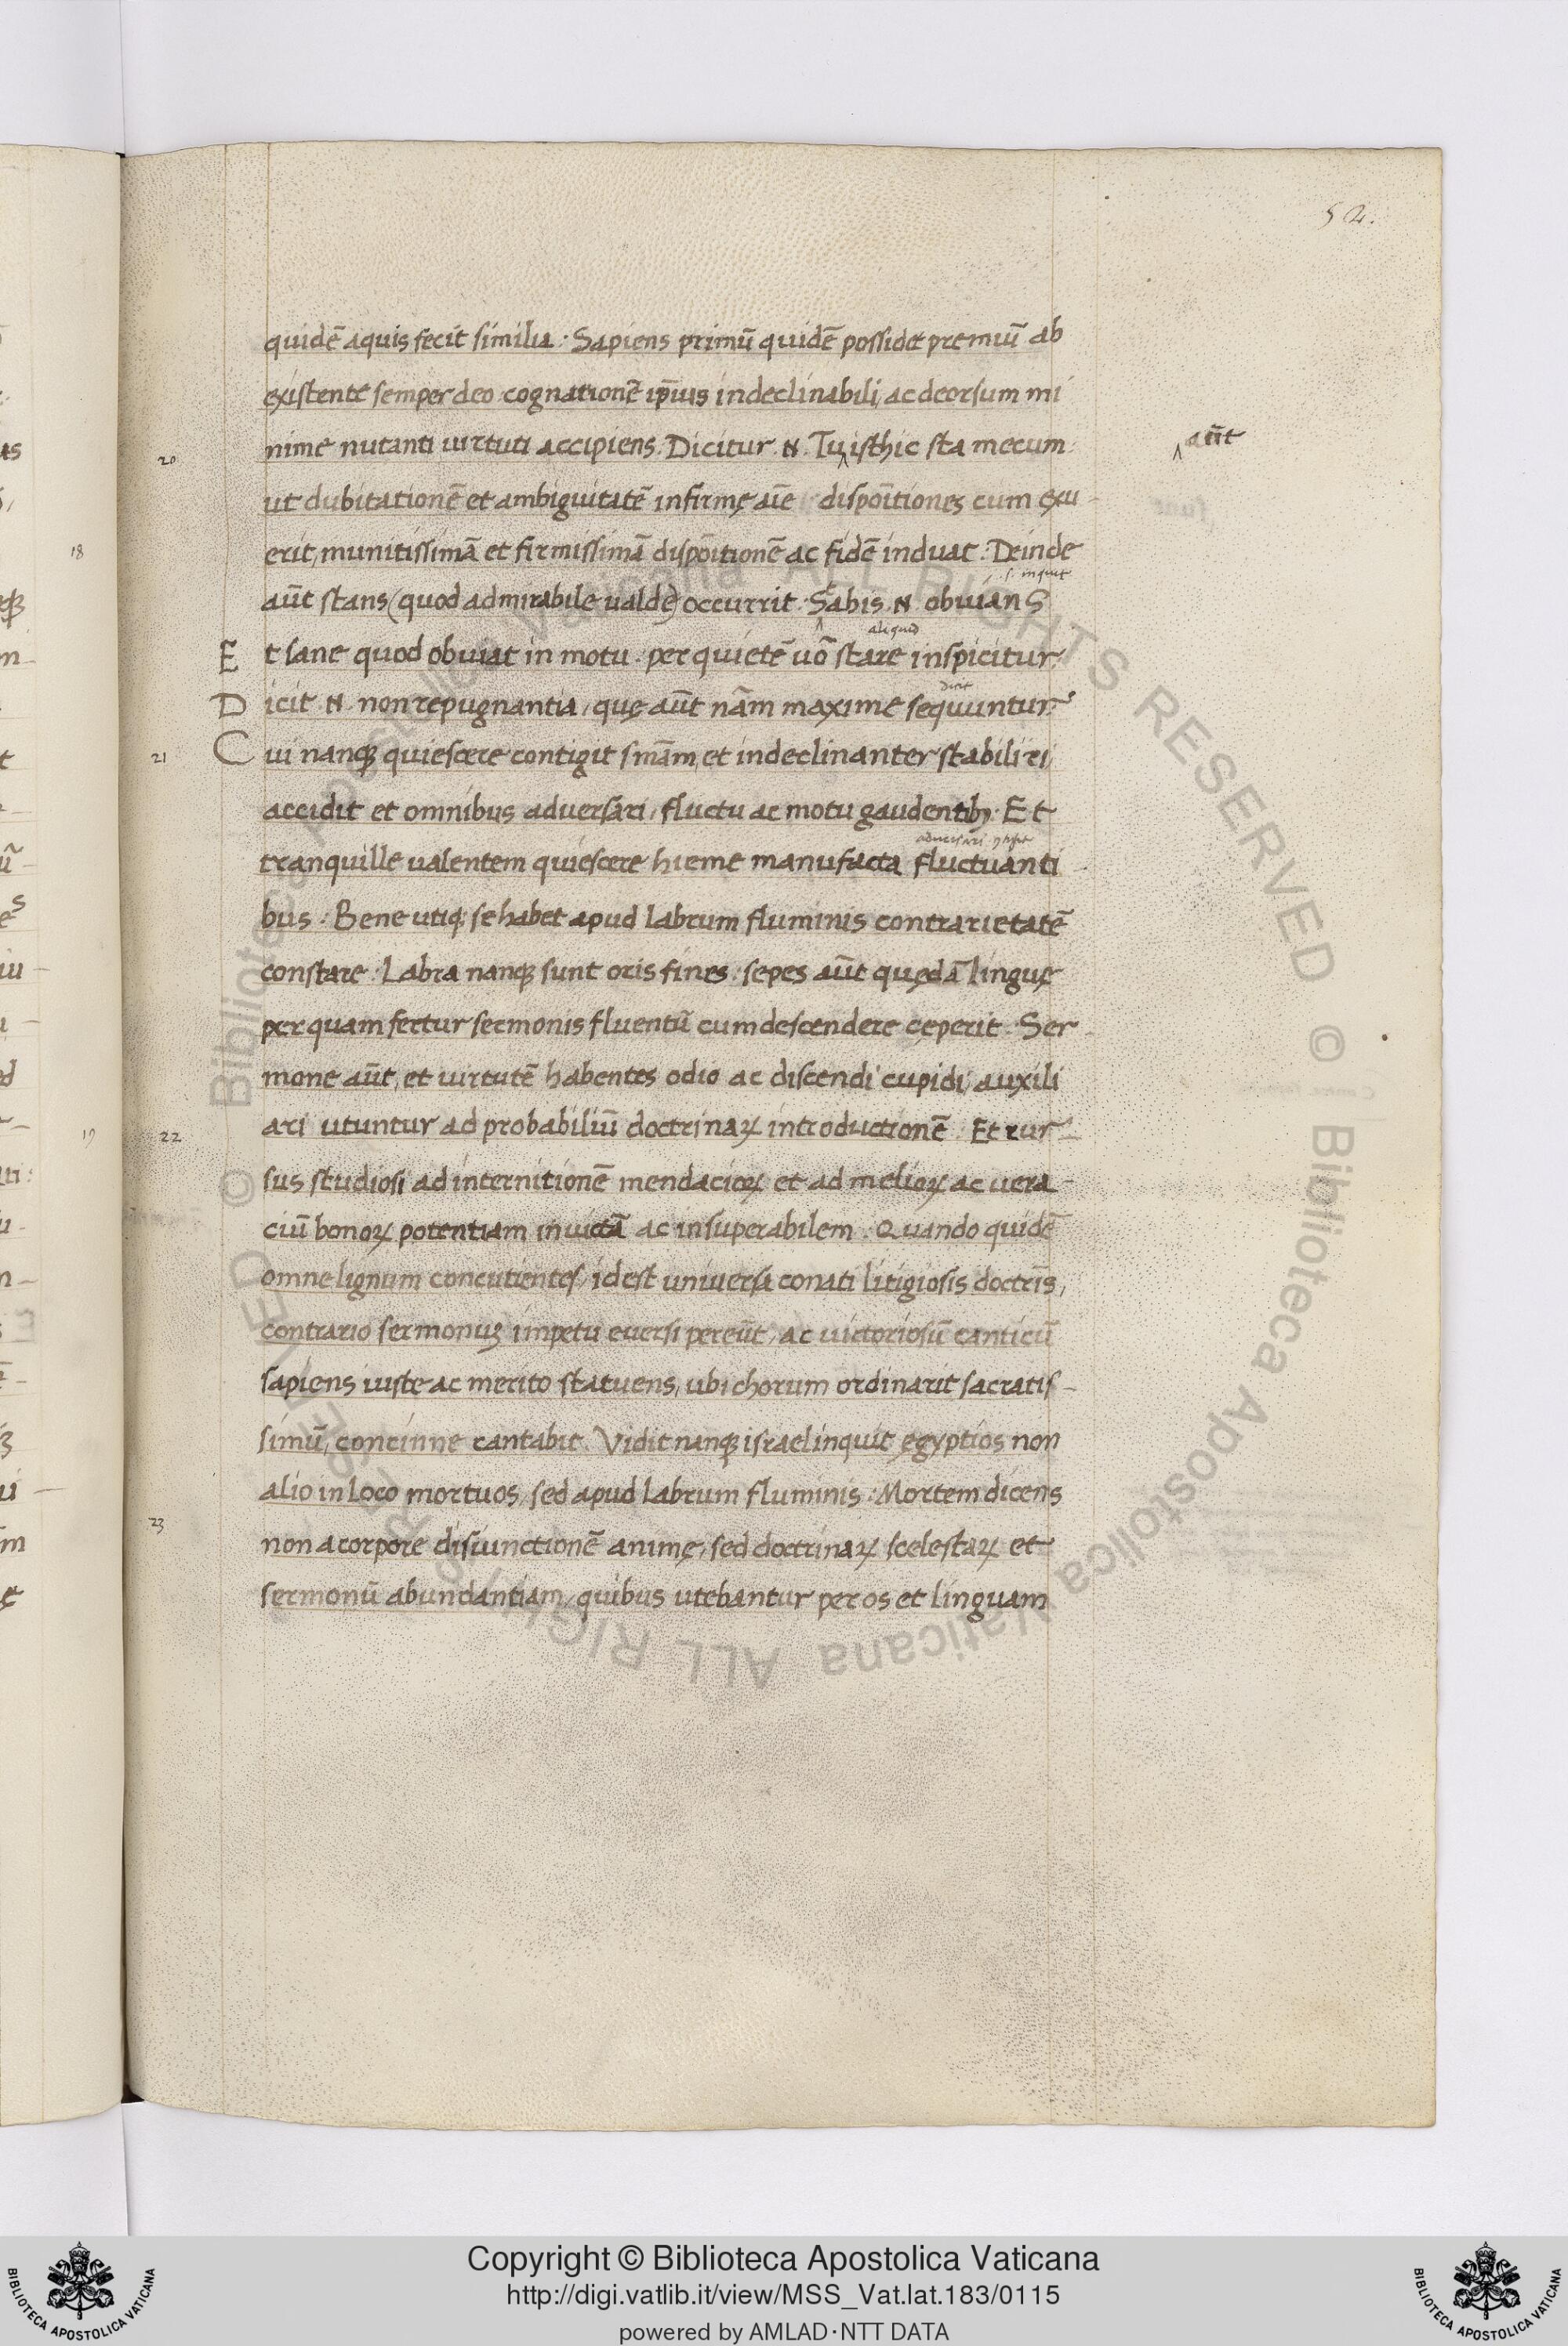 52.
quidē aquis fecit similia : Sapiens primū quidē possidet premiū ab
existente semper deo cognationē ip̄ius indeclinabili, ac deorsum mi
nime nutanti virtuti accipiens. Dicitur .N. Tu‸ isthic sta mecum
‸ aūt
20
ut dubitationē et ambiguitatē infirmę aīe dispoītiones cum exu-
erit, munitissimā et firmissimā dispoītionē ac fidē induat : Deinde
.s. inquit
aūt stans (quod admirabile valde) occurrit. Stabis .N. obvians
aliquid
Et sane quod obviat in motu. per quietē vō stare inspicitur.
Dicit .N. non repugnantia, quę aūt nām maxime sequuntur.
21
Cui nanq; quiescere contigit s̄mām, et indeclinanter stabiliri,
accidit et omnibus adversari, fluctu ac motu gaudentib; Et
tranquille valentem quiescere hieme manufacta fluctuanti
bus : Bene utiq; se habet apud labrum fluminis contrarietatē
constare : Labra nanq; sunt oris fines : sepes aūt quędā linguę
per quam fertur sermonis fluentū cum descendere cęperit : Ser-
mone aūt, et virtutē habentes odio ac discendi cupidi, auxili
ari utuntur ad probabiliū doctrinaꝝ introductionē : Et rur-
22
sus studiosi ad internitionē mendacioꝝ et ad melioꝝ ac vera-
ciū bonoꝝ potentiam invictā ac insuperabilem : Quando quidē
omne lignum concutientes, id est universa conati litigiosis doctrīs,
contrario sermonuꝫ impetu eversi pereūt, ac victoriosū canticū
sapiens iuste ac merito statuens, ubi chorum ordinarit sacratis-
simū, concinne cantabit. Vidit nanq; israel inquit ęgyptios non
alio in loco mortuos, sed apud labrum fluminis : Mortem dicens
23
non a corpore disiunctionē animę, sed doctrinaꝝ scelestaꝝ et
sermonū abundantiam, quibus utebantur per os et linguam
18
19
Copyright © Biblioteca Apostolica Vaticana
http://digi.vatlib.it/view/MSS_Vat.lat.183/0115
powered by AMLAD·NTT DATA
BIBLIOTECA APOSTOLICA VATICANA
BIBLIOTECA APOSTOLICA VATICANA
© Biblioteca Apostolica Vaticana ALL RIGHTS RESERVED © Biblioteca Apostolica Vaticana ALL RIGHTS RESERVED